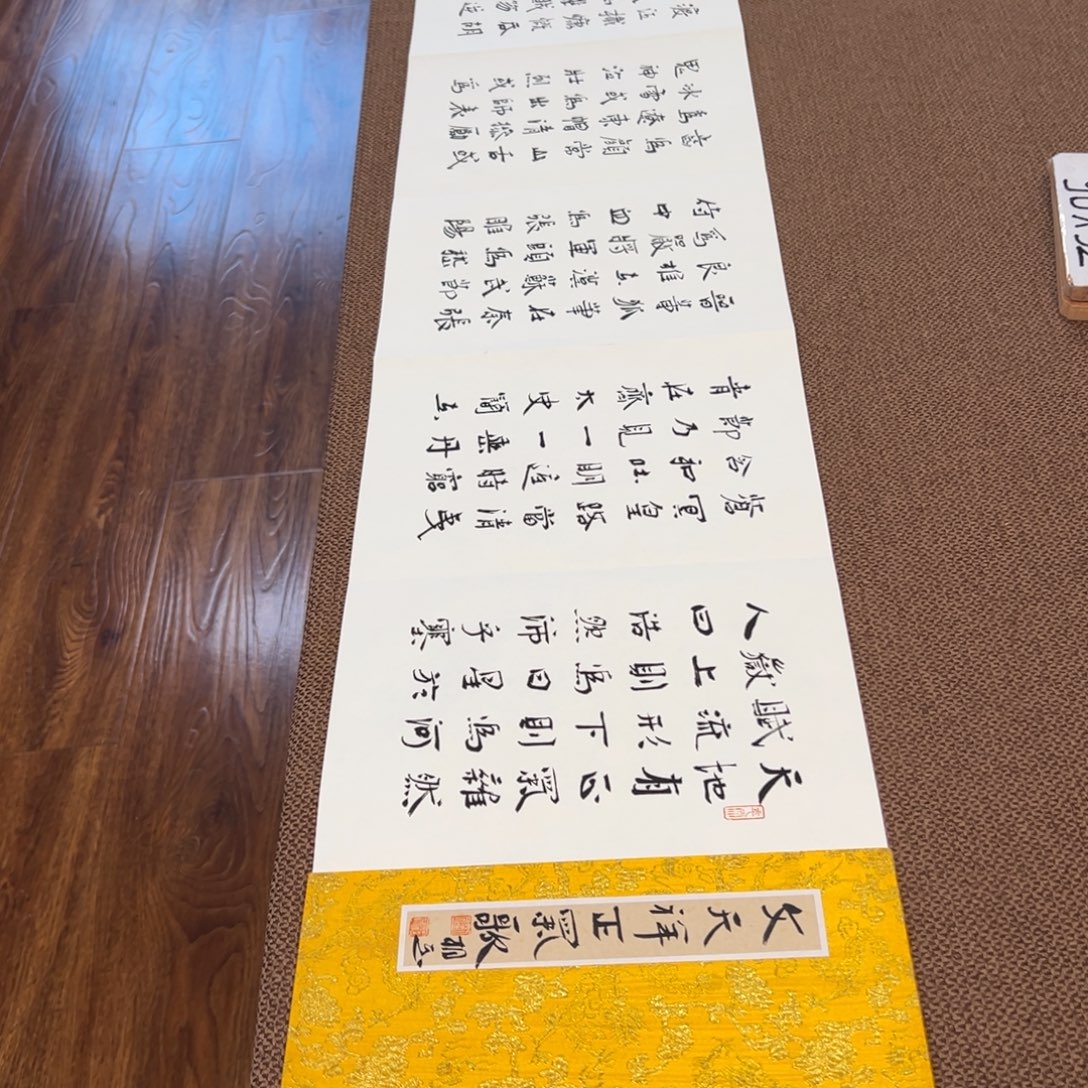 文天祥正氣歌
天地有正氣雜然
賦流形下則為河
嶽上則為日星於
人曰浩然沛乎塞
蒼冥皇路當清夷
含和吐明廷時窮
節乃見一一垂丹
青在齊太史簡在
晉董狐筆在秦張
良椎在漢蘇武節
為嚴將軍頭為嵇
侍中血為張睢陽
齒為顏常山舌或
為遼東帽清操厲
冰雪或為出師表
鬼神泣壯烈或為
渡江楫慷慨吞胡